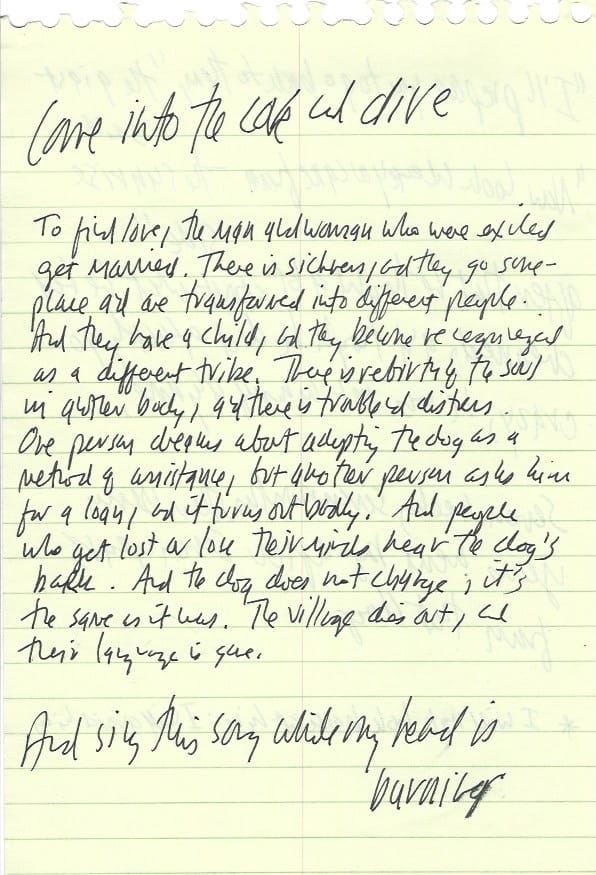 Come into the lake and dive
To find love, the man and woman who were exiled
get married. There is sickness, and they go some-
place and are transformed into different people.
And they have a child, and they become recognized
as a different tribe. There is rebirth of the soul
in another body, and there is trouble and distress.
One person dreams about adopting the dog as a
method of assistance, but another person asks him
for a loan, and it turns out badly. And people
who get lost or lose their minds hear the dog's
bark. And the dog does not change, it's
the same as it was. The village dies out, and
their language is gone.
And sing this song while my head is
burning